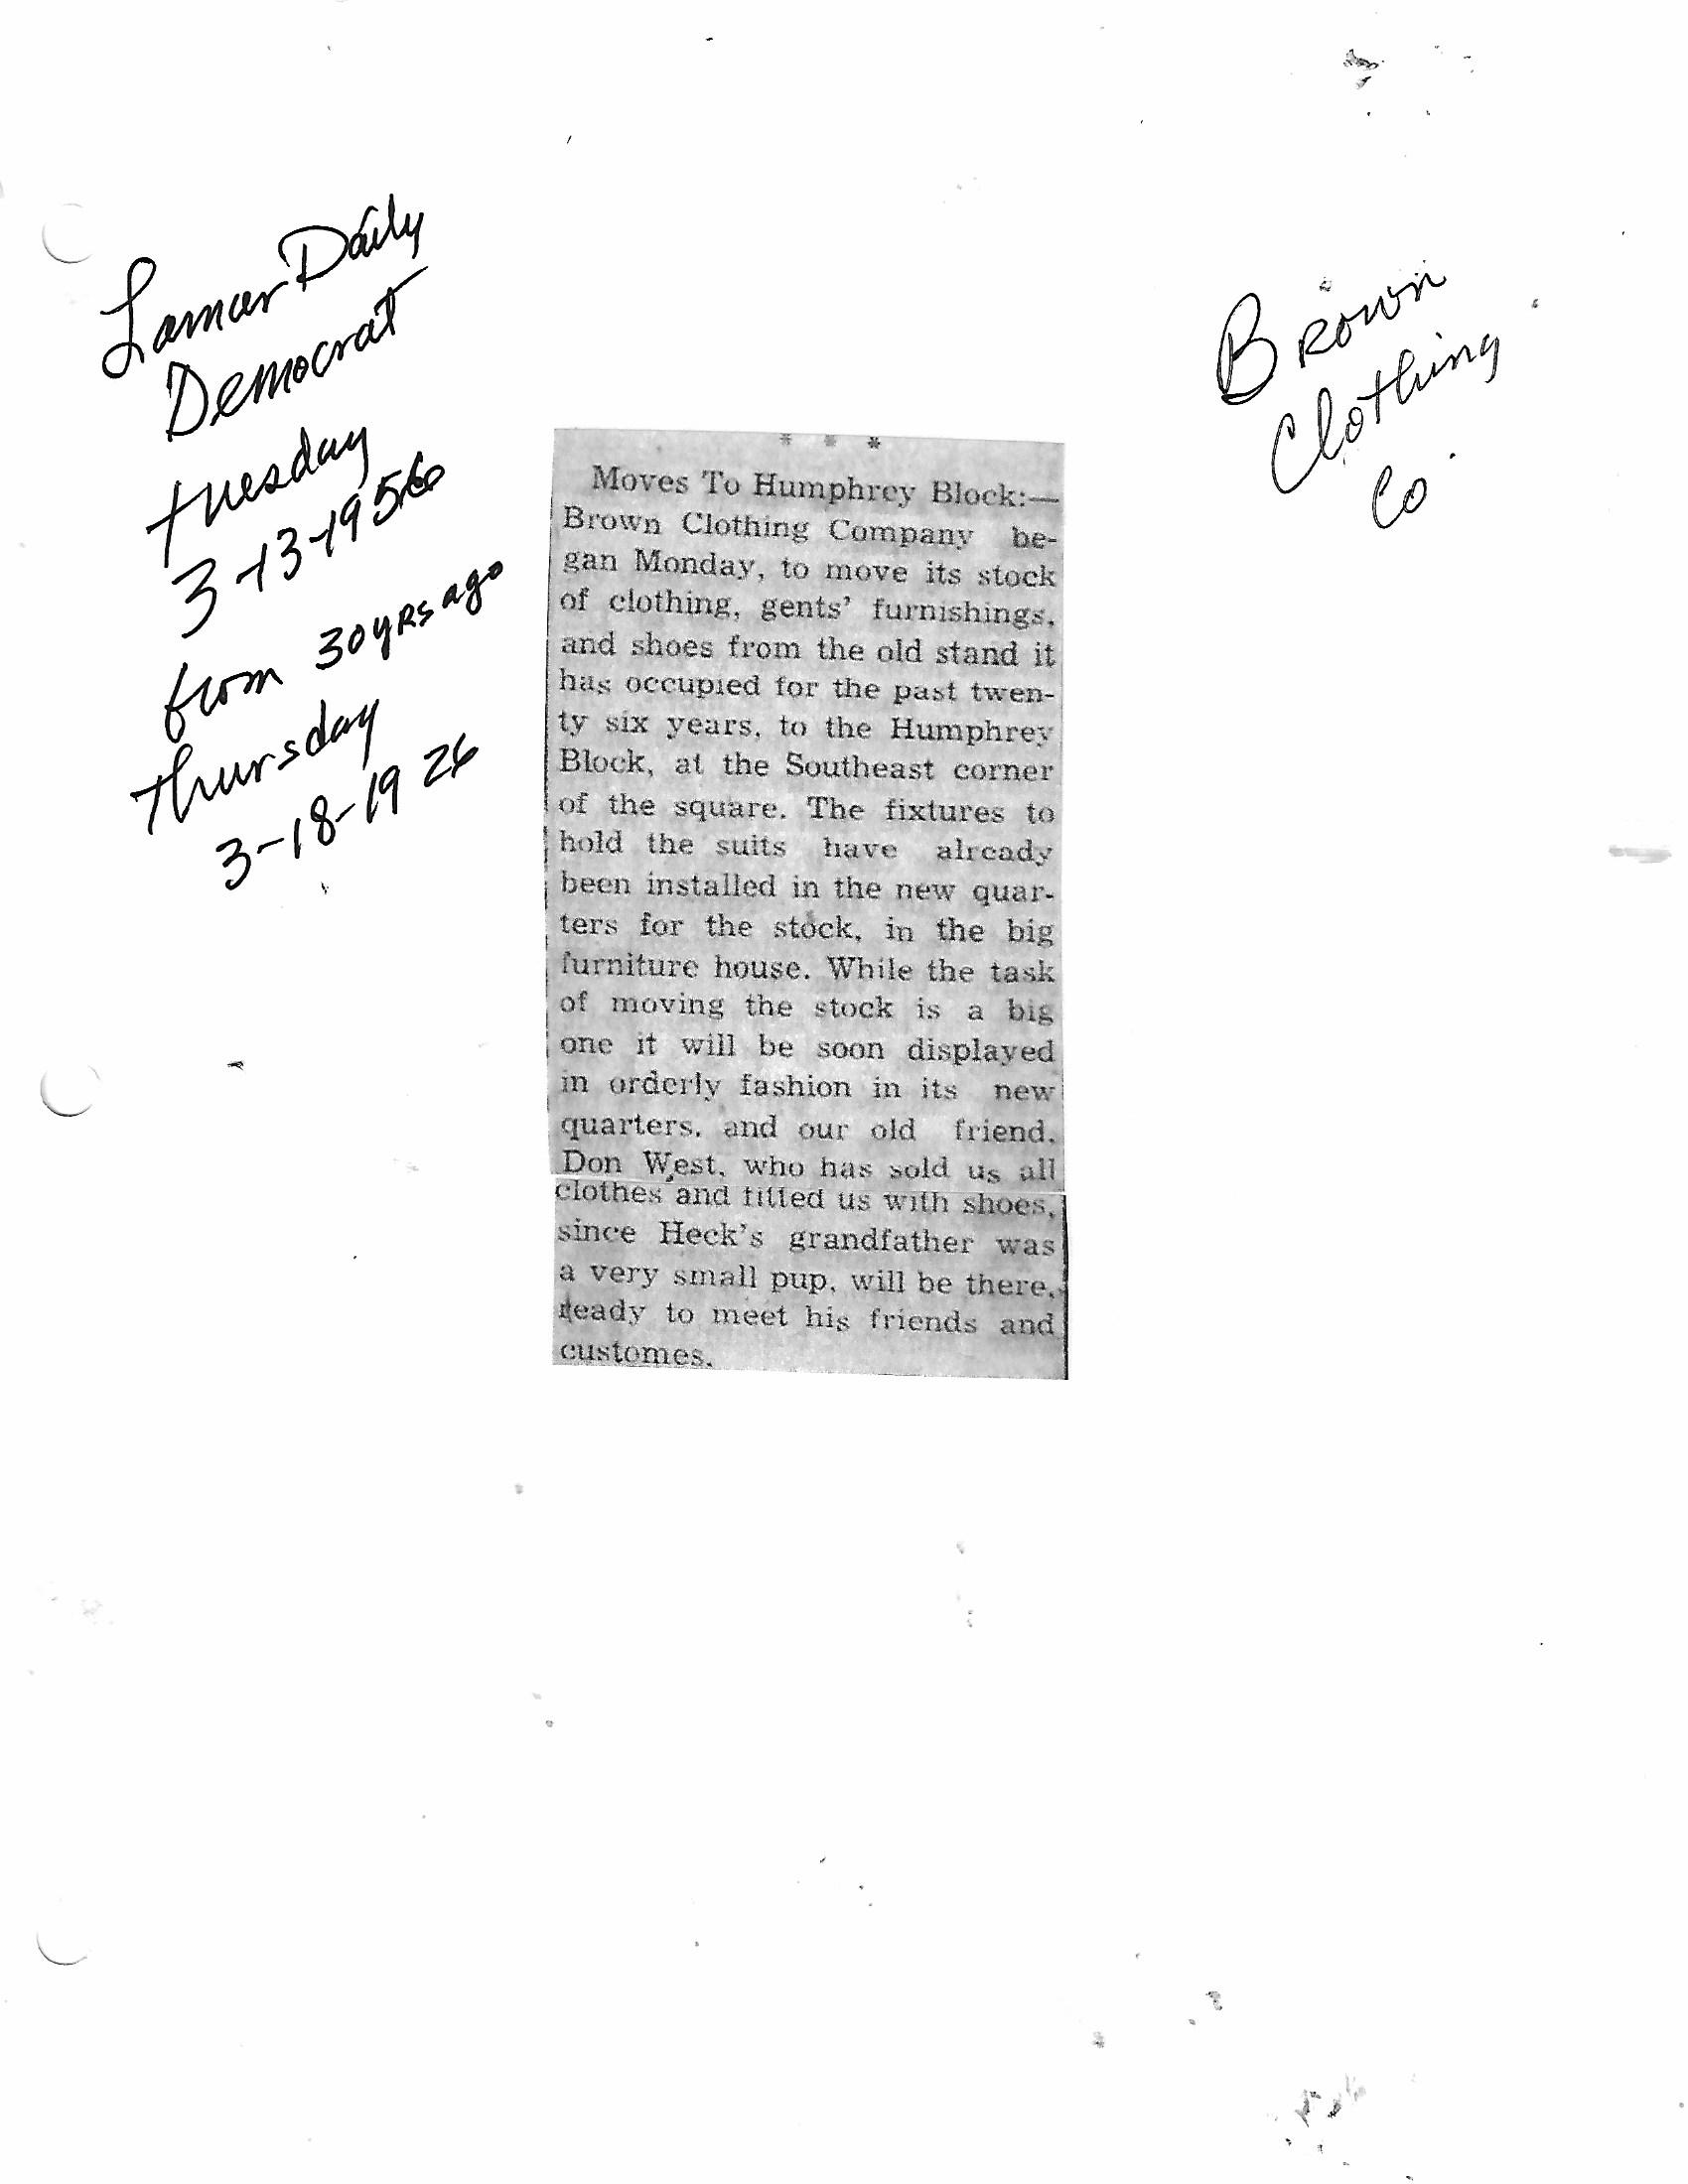 Lamar Daily
Democrat
tuesday
3-13-1956
from 30 yRs ago
thursday
3-18-1926
BROWN
Clothing
Co.
* * *
Moves To Humphrey Block:—
Brown Clothing Company be-
gan Monday, to move its stock
of clothing, gents' furnishings,
and shoes from the old stand it
has occupied for the past twen-
ty six years, to the Humphrey
Block, at the Southeast corner
of the square. The fixtures to
hold the suits have already
been installed in the new quar-
ters for the stock, in the big
furniture house. While the task
of moving the stock is a big
one it will be soon displayed
in orderly fashion in its new
quarters, and our old friend,
Don West, who has sold us all
clothes and fitted us with shoes,
since Heck's grandfather was
a very small pup, will be there,
ready to meet his friends and
customes.